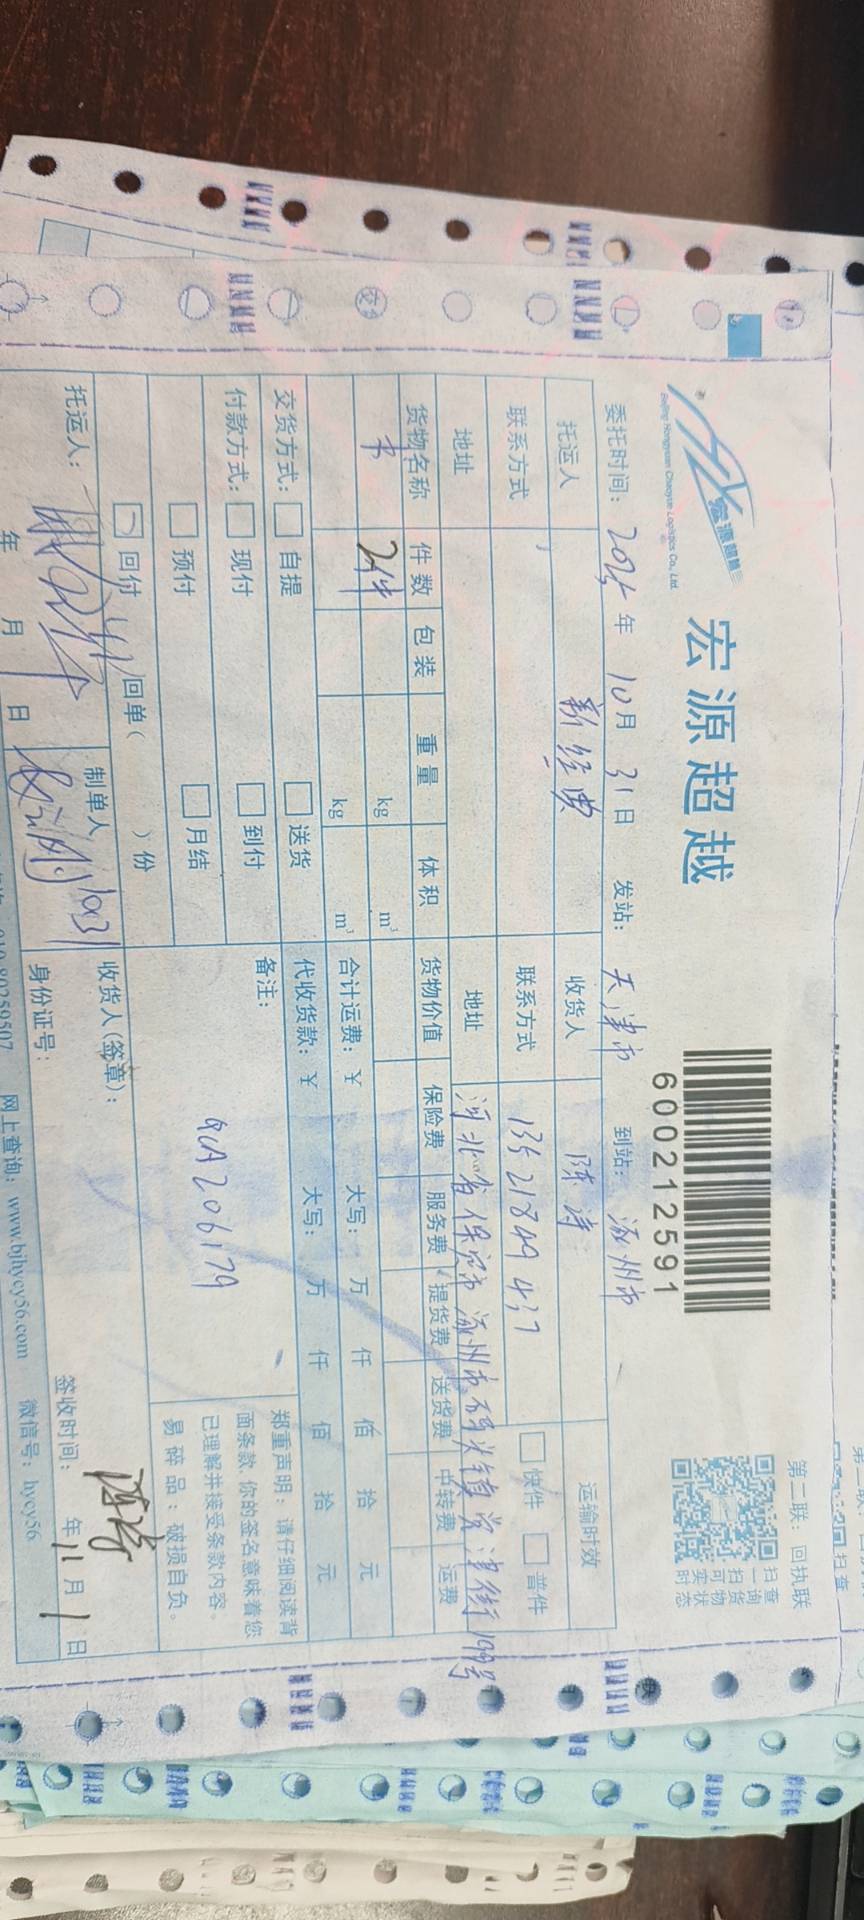 宏源超越
宏源超越
Beijing Hongyuan Chaoyue Logistics Co., Ltd.
6000212591
第二联：回执联
扫一扫可实时
查询货物状态
委托时间： 年 10月 31日 发站： 天津市 到站： 涿州市
托运人 新经典 收货人 陈涛 运输时效
联系方式 联系方式 快件 普件
地址 地址 河北省保定市涿州市码头镇 199号
货物名称 件数 包装 重量 体积 货物价值 保险费 服务费 提货费 送货费 中转费 运费
书 2件 kg m³
kg m³ 合计运费：￥ 大写： 万 仟 佰 拾 元
交货方式： 自提 送货 代收货款：￥ 大写： 万 仟 佰 拾 元
付款方式： 现付 到付 备注：
预付 月结 206179
回付 回单（ ）份
郑重声明：请仔细阅读背
面条款，你的签名意味着您
已理解并接受条款内容。
易碎品：破损自负。
托运人： 制单人 1031 收货人(签章)： 陈涛
年 月 日 身份证号： 签收时间： 年 11月 1日
010-80259507 网上查询：www.bjhycy56.com 微信号：hycy56